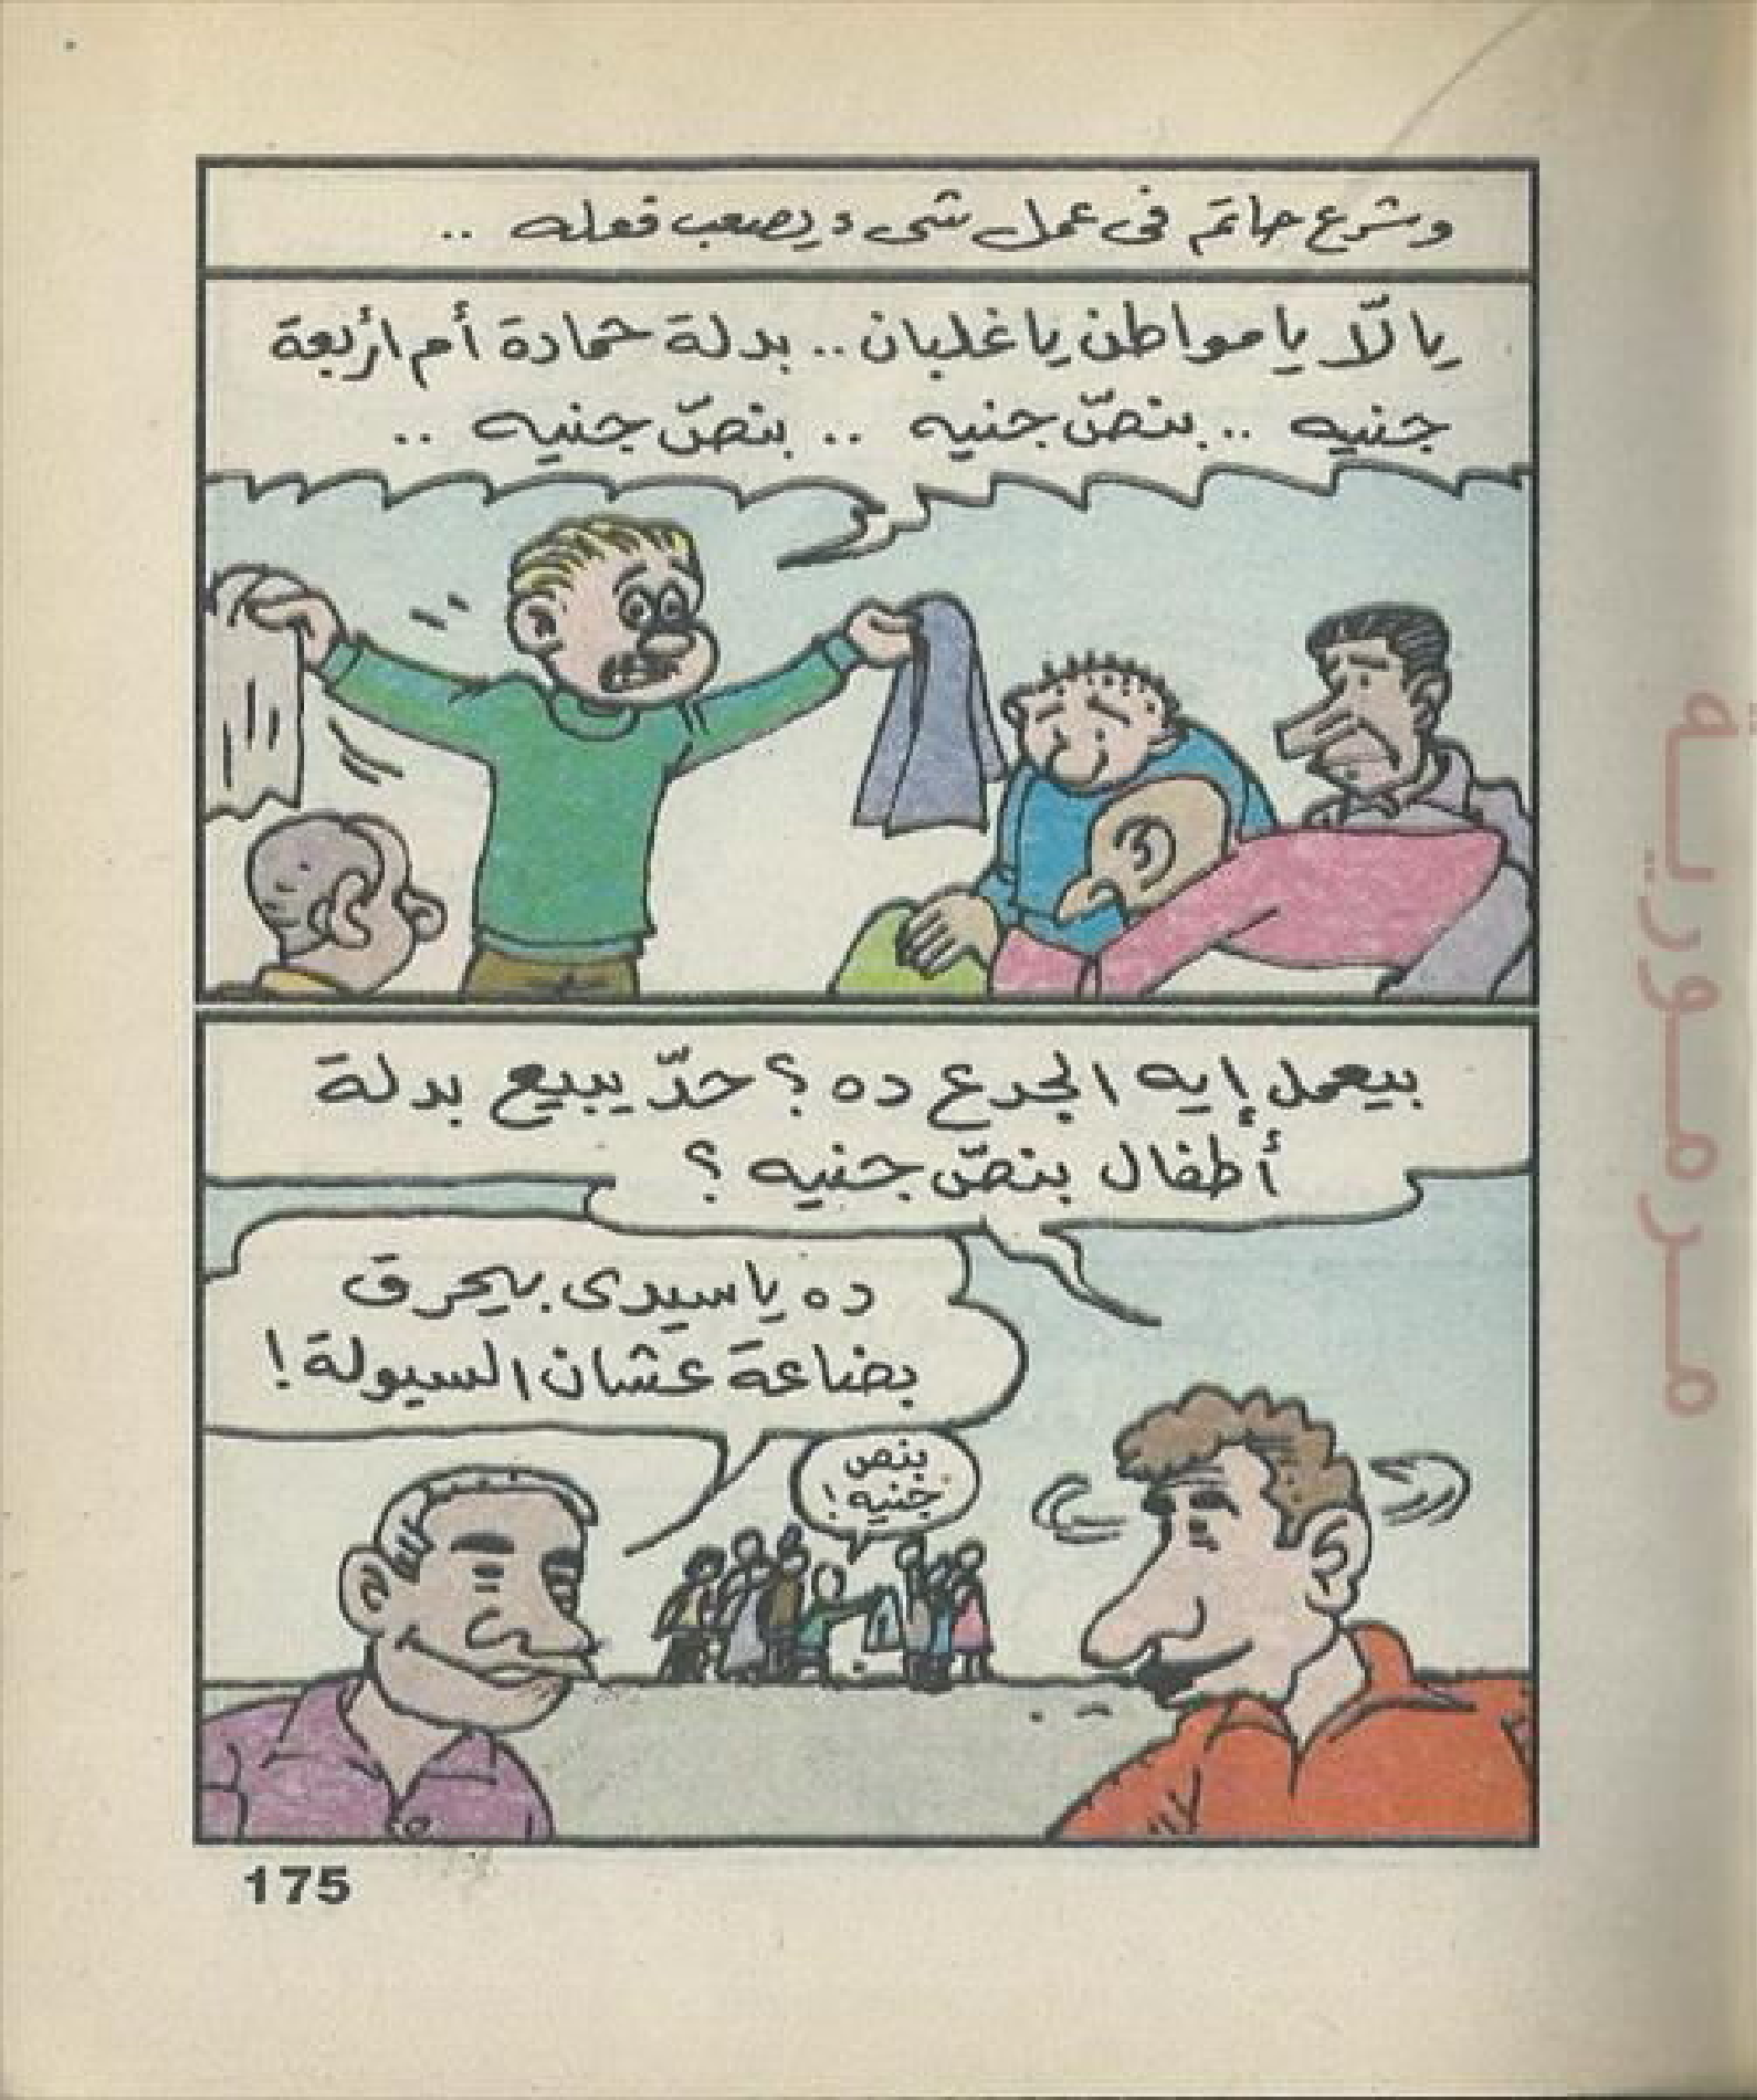 وشرع حاتم فى عمل شىء يصعب فعله ..
يالّا يا مواطن يا غلبان .. بدلة حمادة أم أربعة
جنيه .. بنصّ جنيه .. بنصّ جنيه ..
بيعمل إيه الجدع ده ؟ حدّ يبيع بدلة
أطفال بنصّ جنيه ؟
ده يا سيدى بيحرق
بضاعة عشان السيولة !
بنص
جنيه !
175
مرمورية